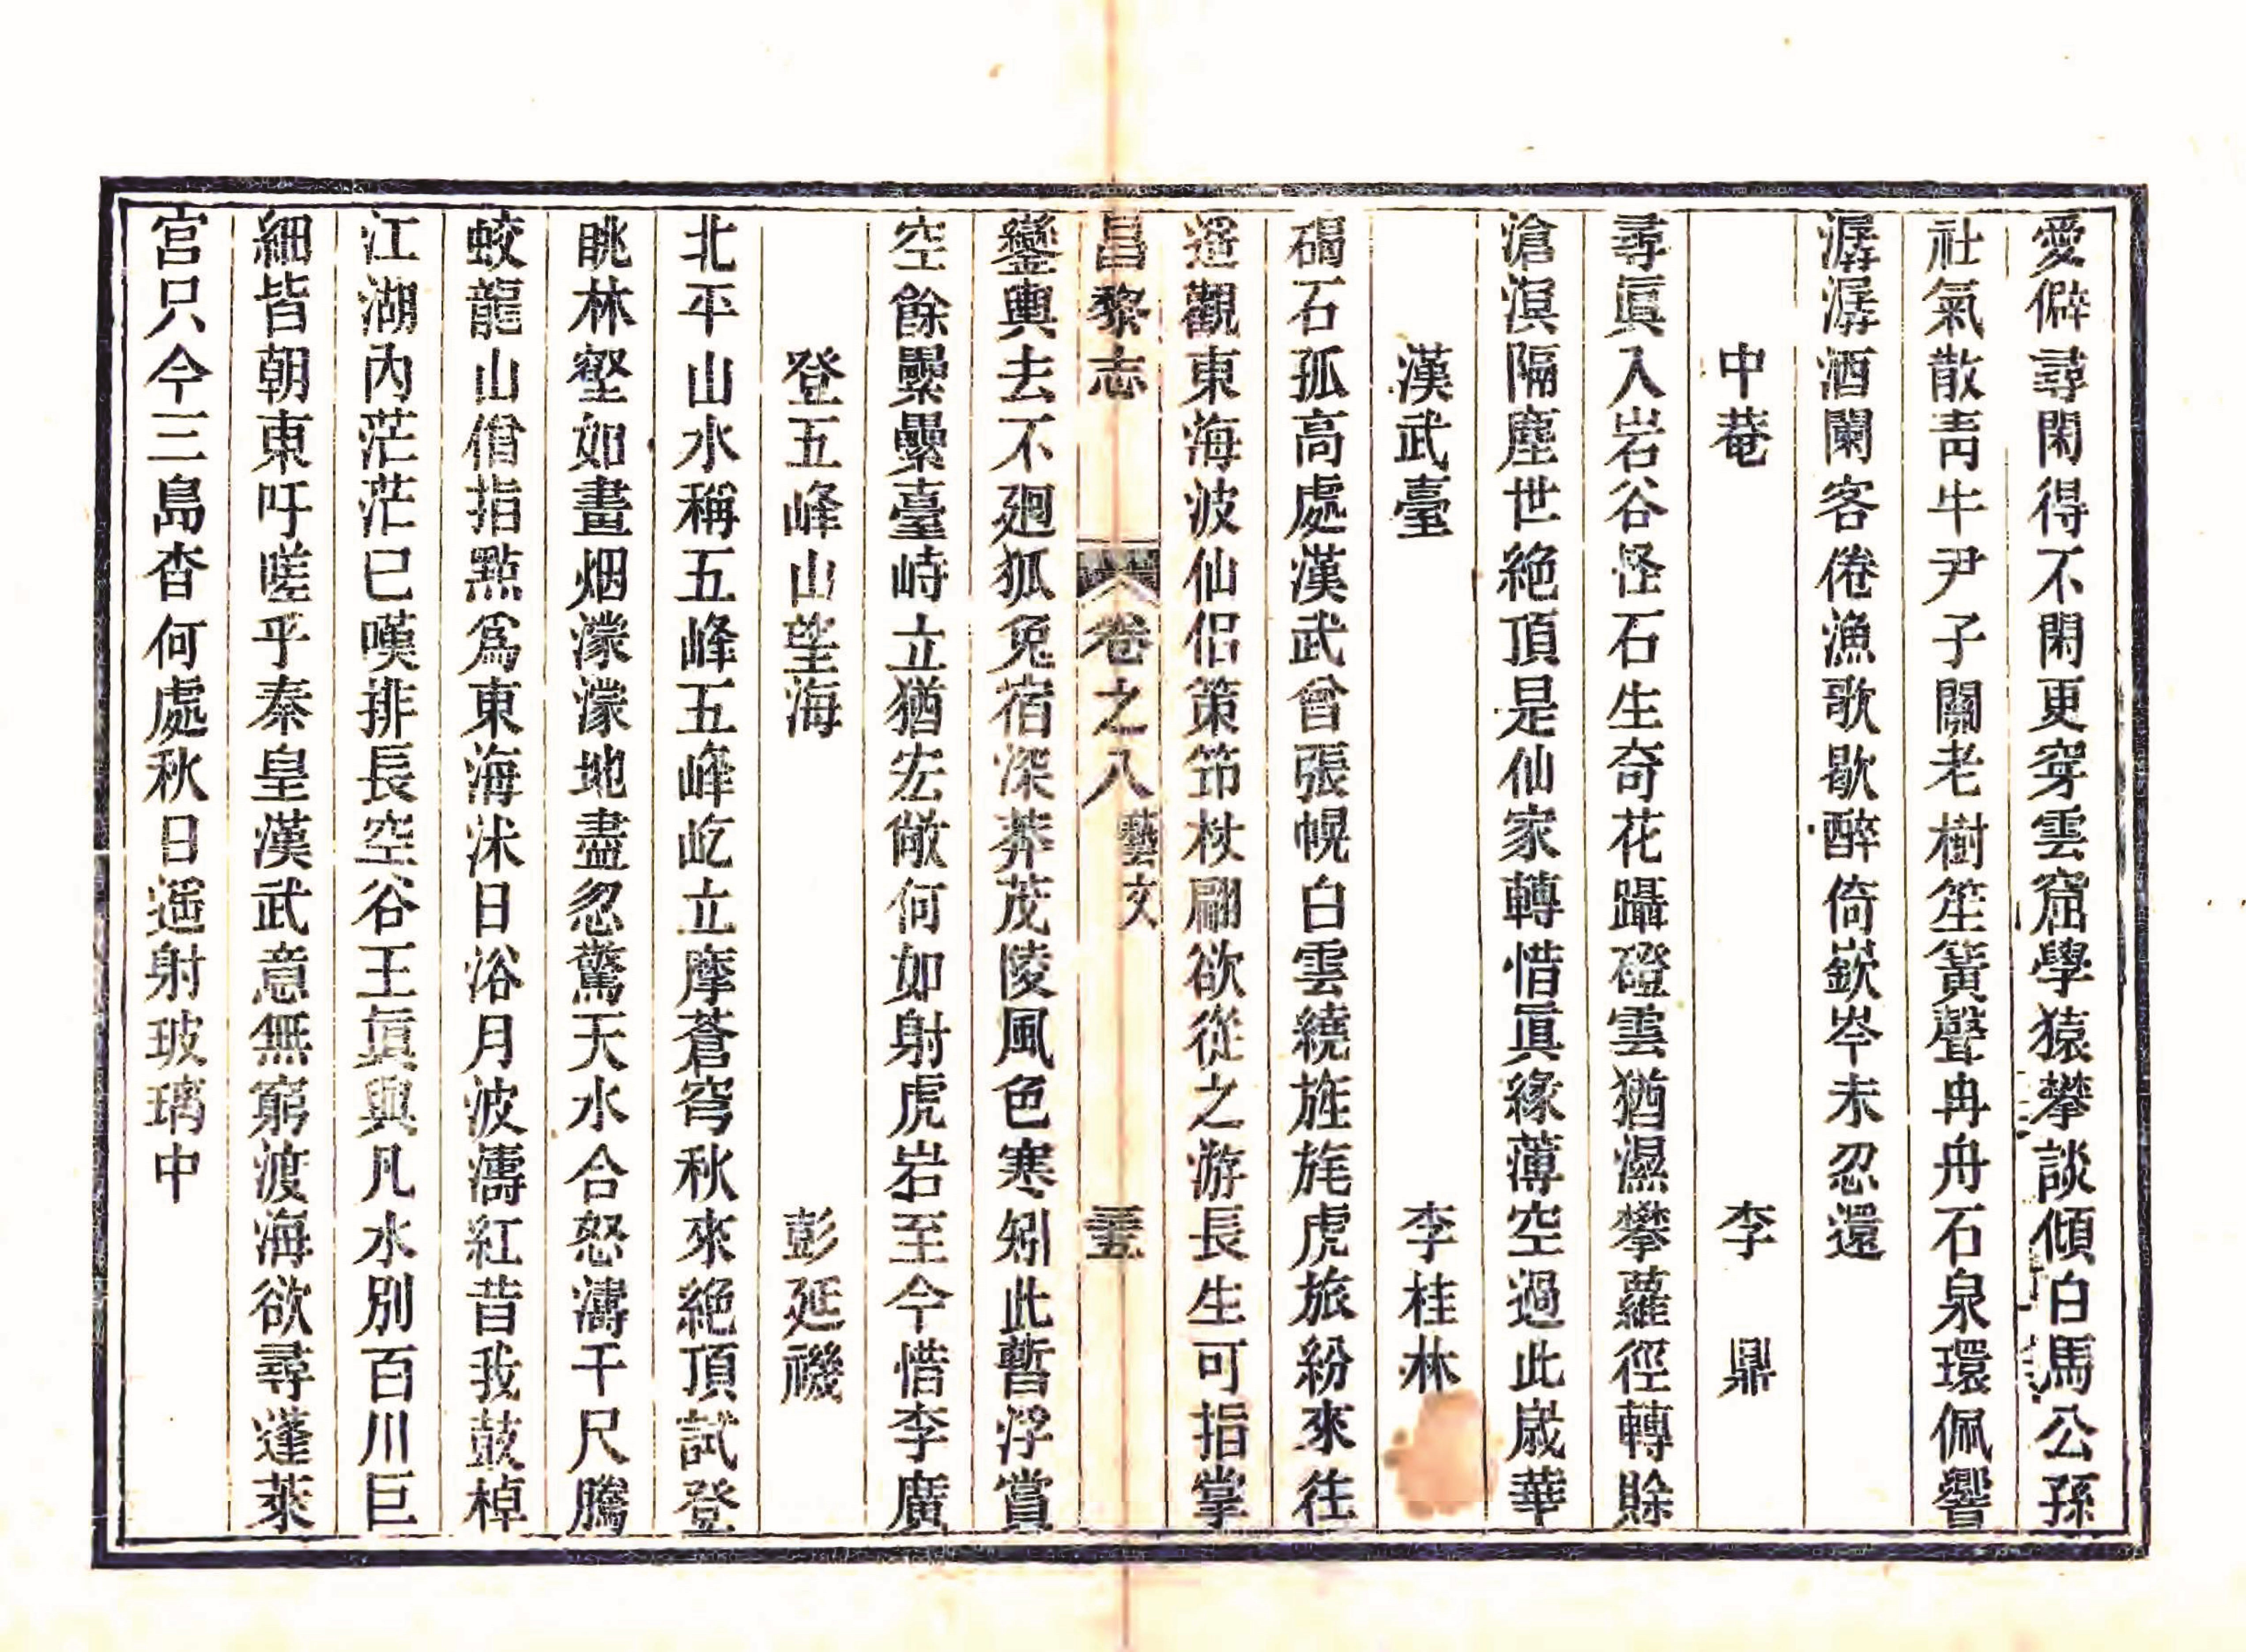 愛僻尋閑得不閑更穿雲窟學猿攀談傾白馬公孫
社氣散靑牛尹子關老樹笙簧聲冉冉石泉環佩響
潺潺酒闌客倦漁歌歇醉倚嶔岑未忍還
中菴 李鼎
尋眞入岩谷怪石生奇花躡磴雲猶濕攀蘿徑轉賒
滄溟隔塵世絶頂是仙家轉惜眞緣薄空過此歲華
漢武臺 李桂林
碣石孤高處漢武曾張幌白雲繞旌旄虎旅紛來往
遥觀東海波仙侶策笻杖翩欲從之游長生可指掌
昌黎志 卷之八 藝文
鑾輿去不廻狐兎宿深莽茂陵風色寒矧此暫浮賞
空餘纍纍臺峙立猶宏敞何如射虎岩至今惜李廣
登五峰山望海 彭延禨
北平山水稱五峰五峰屹立摩蒼穹秋來絶頂試登
眺林壑如畫烟濛濛地盡忽驚天水合怒濤干尺騰
蛟龍山僧指點爲東海沐日浴月波濤紅昔我鼓棹
江湖內茫茫已嘆排長空谷王眞與凡水別百川巨
細皆朝東吁嗟乎秦皇漢武意無窮渡海欲尋蓬萊
宮只今三島杳何處秋日遥射玻璃中